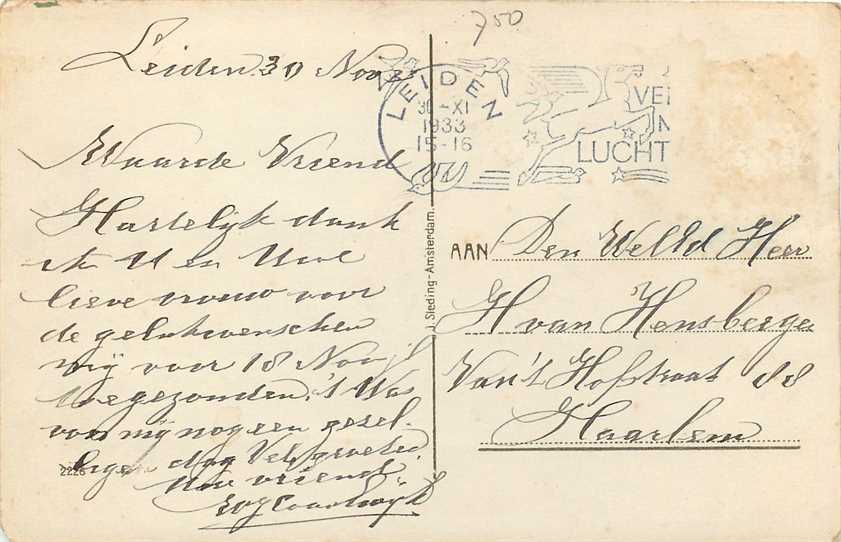 750
Leiden 30 Nov
LEIDEN
30-XI
1933
15-16
VE
LUCHT
Waarde Vriend
Hartelijk dank
ik U en Uwe
lieve vrouw voor
de gelukwenschen
mij voor 18 Nov jl
toegezonden. 't Was
voor mij nog een gesel-
ligen dag Vele groeten
Uw vriend
2226
J. Sleding-Amsterdam.
AAN Den Weled Heer
H van Hensberge
Van 't Hofstraat 88
Haarlem